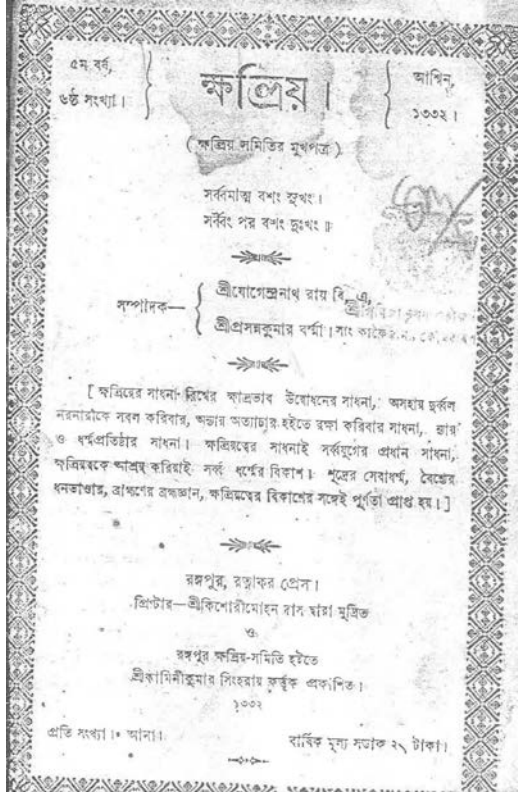 ৫ম বর্ষ,
৬ষ্ঠ সংখ্যা।
ক্ষত্রিয়।
আশ্বিন,
১৩৩২।
( ক্ষত্রিয় সমিতির মুখপত্র )
সর্ব্বমাত্ম বশং সুখং।
সর্ব্বং পর বশং দুঃখং॥
সম্পাদক—
শ্রীযোগেন্দ্রনাথ রায় বি, এ,
শ্রীপ্রসন্নকুমার বর্ম্মা।
[ ক্ষত্রিয়ের সাধনা বিশ্বের ক্ষাত্রভাব উদ্বোধনের সাধনা, অসহায় দুর্ব্বল
নরনারীকে সবল করিবার, অন্যায় অত্যাচার হইতে রক্ষা করিবার সাধনা, ন্যায়
ও ধর্ম্মপ্রতিষ্ঠার সাধনা। ক্ষত্রিয়ত্বের সাধনাই সর্ব্বযুগের প্রধান সাধনা,
ক্ষত্রিয়ত্বকে আশ্রয় করিয়াই সর্ব্ব ধর্ম্মের বিকাশ। শূদ্রের সেবাধর্ম্ম, বৈশ্যের
ধনভাণ্ডার, ব্রাহ্মণের ব্রহ্মজ্ঞান, ক্ষত্রিয়ত্বের বিকাশের সঙ্গেই পূর্ণতা প্রাপ্ত হয়। ]
রঙ্গপুর, রত্নাকর প্রেস।
প্রিণ্টার—শ্রীকিশোরীমোহন দাস দ্বারা মুদ্রিত
ও
রঙ্গপুর ক্ষত্রিয়-সমিতি হইতে
শ্রীকামিনীকুমার সিংহরায় কর্ত্তৃক প্রকাশিত।
১৩৩২
প্রতি সংখ্যা।০ আনা।
বার্ষিক মূল্য সডাক ২৲ টাকা।